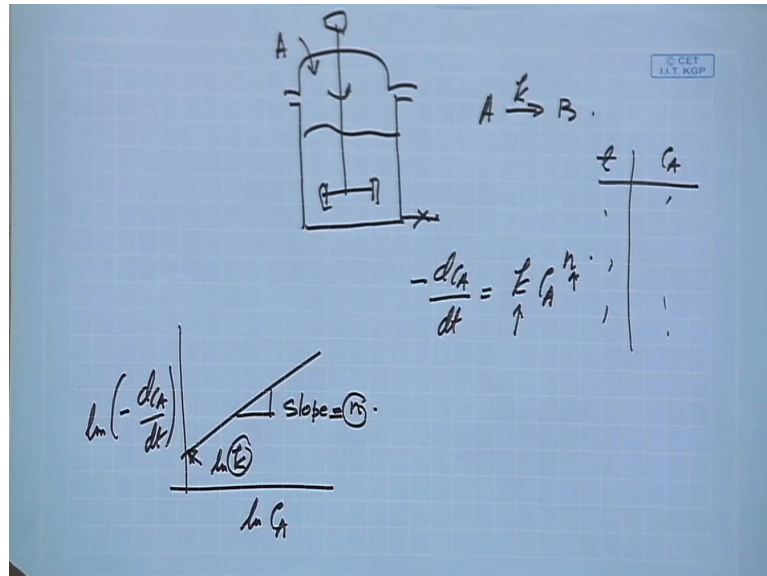 © CET
I.I.T. KGP
A
A k→ B.
t | C_A
-dC_A/dt = k C_A^n
ln(-dC_A/dt)
Slope = n.
ln k
ln C_A